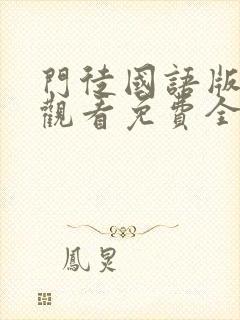 門徒國語版
觀看免費全
鳳炅